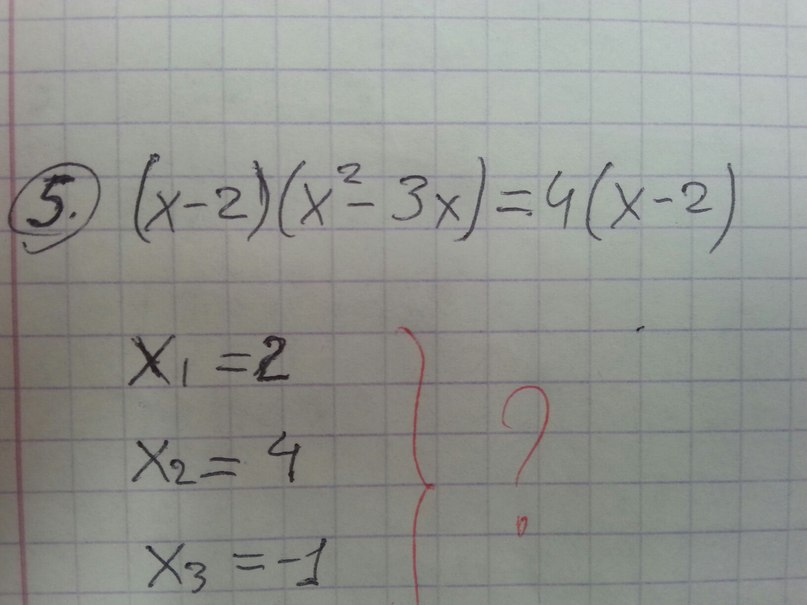 5. (x-2)(x²-3x)=4(x-2)
x₁=2
x₂=4
x₃=-1
?